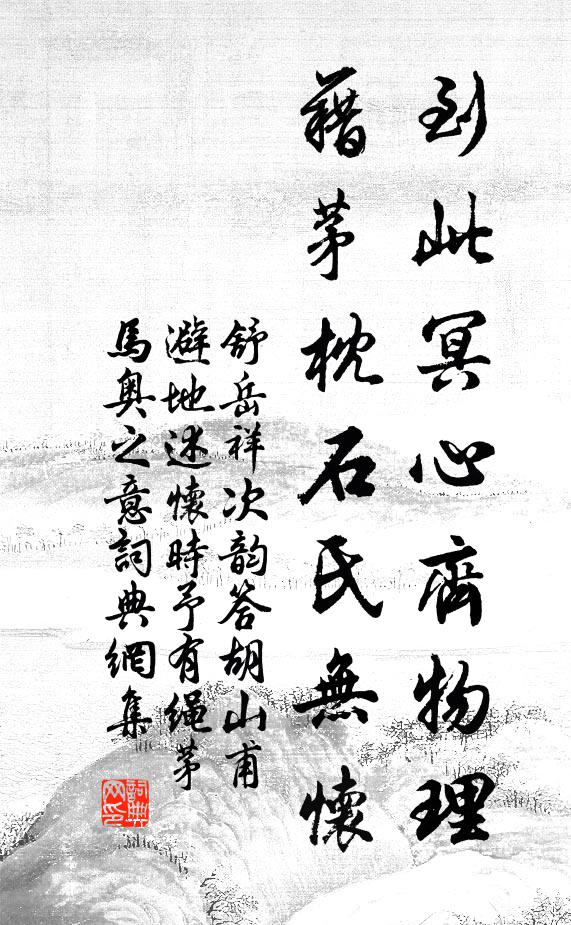 到此冥心齊物理
藉茅枕石民無懷
舒岳祥次韵答胡山甫
避地述懷時予有繩茅
馬奧之意詞典網集
詞典网印